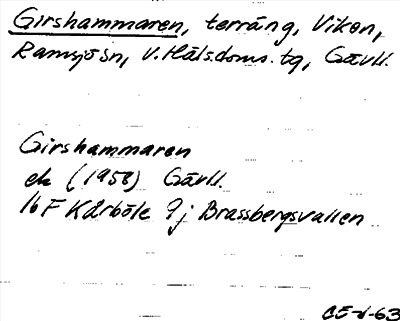 Girshammaren, terräng, Vikon,
Ramsjösn, V. Hälsdoms. tg, Gävll.
Girshammaren
ek (1958) Gävll.
16 F Kårböle 9j Brassbergsvallen
CE-d-63